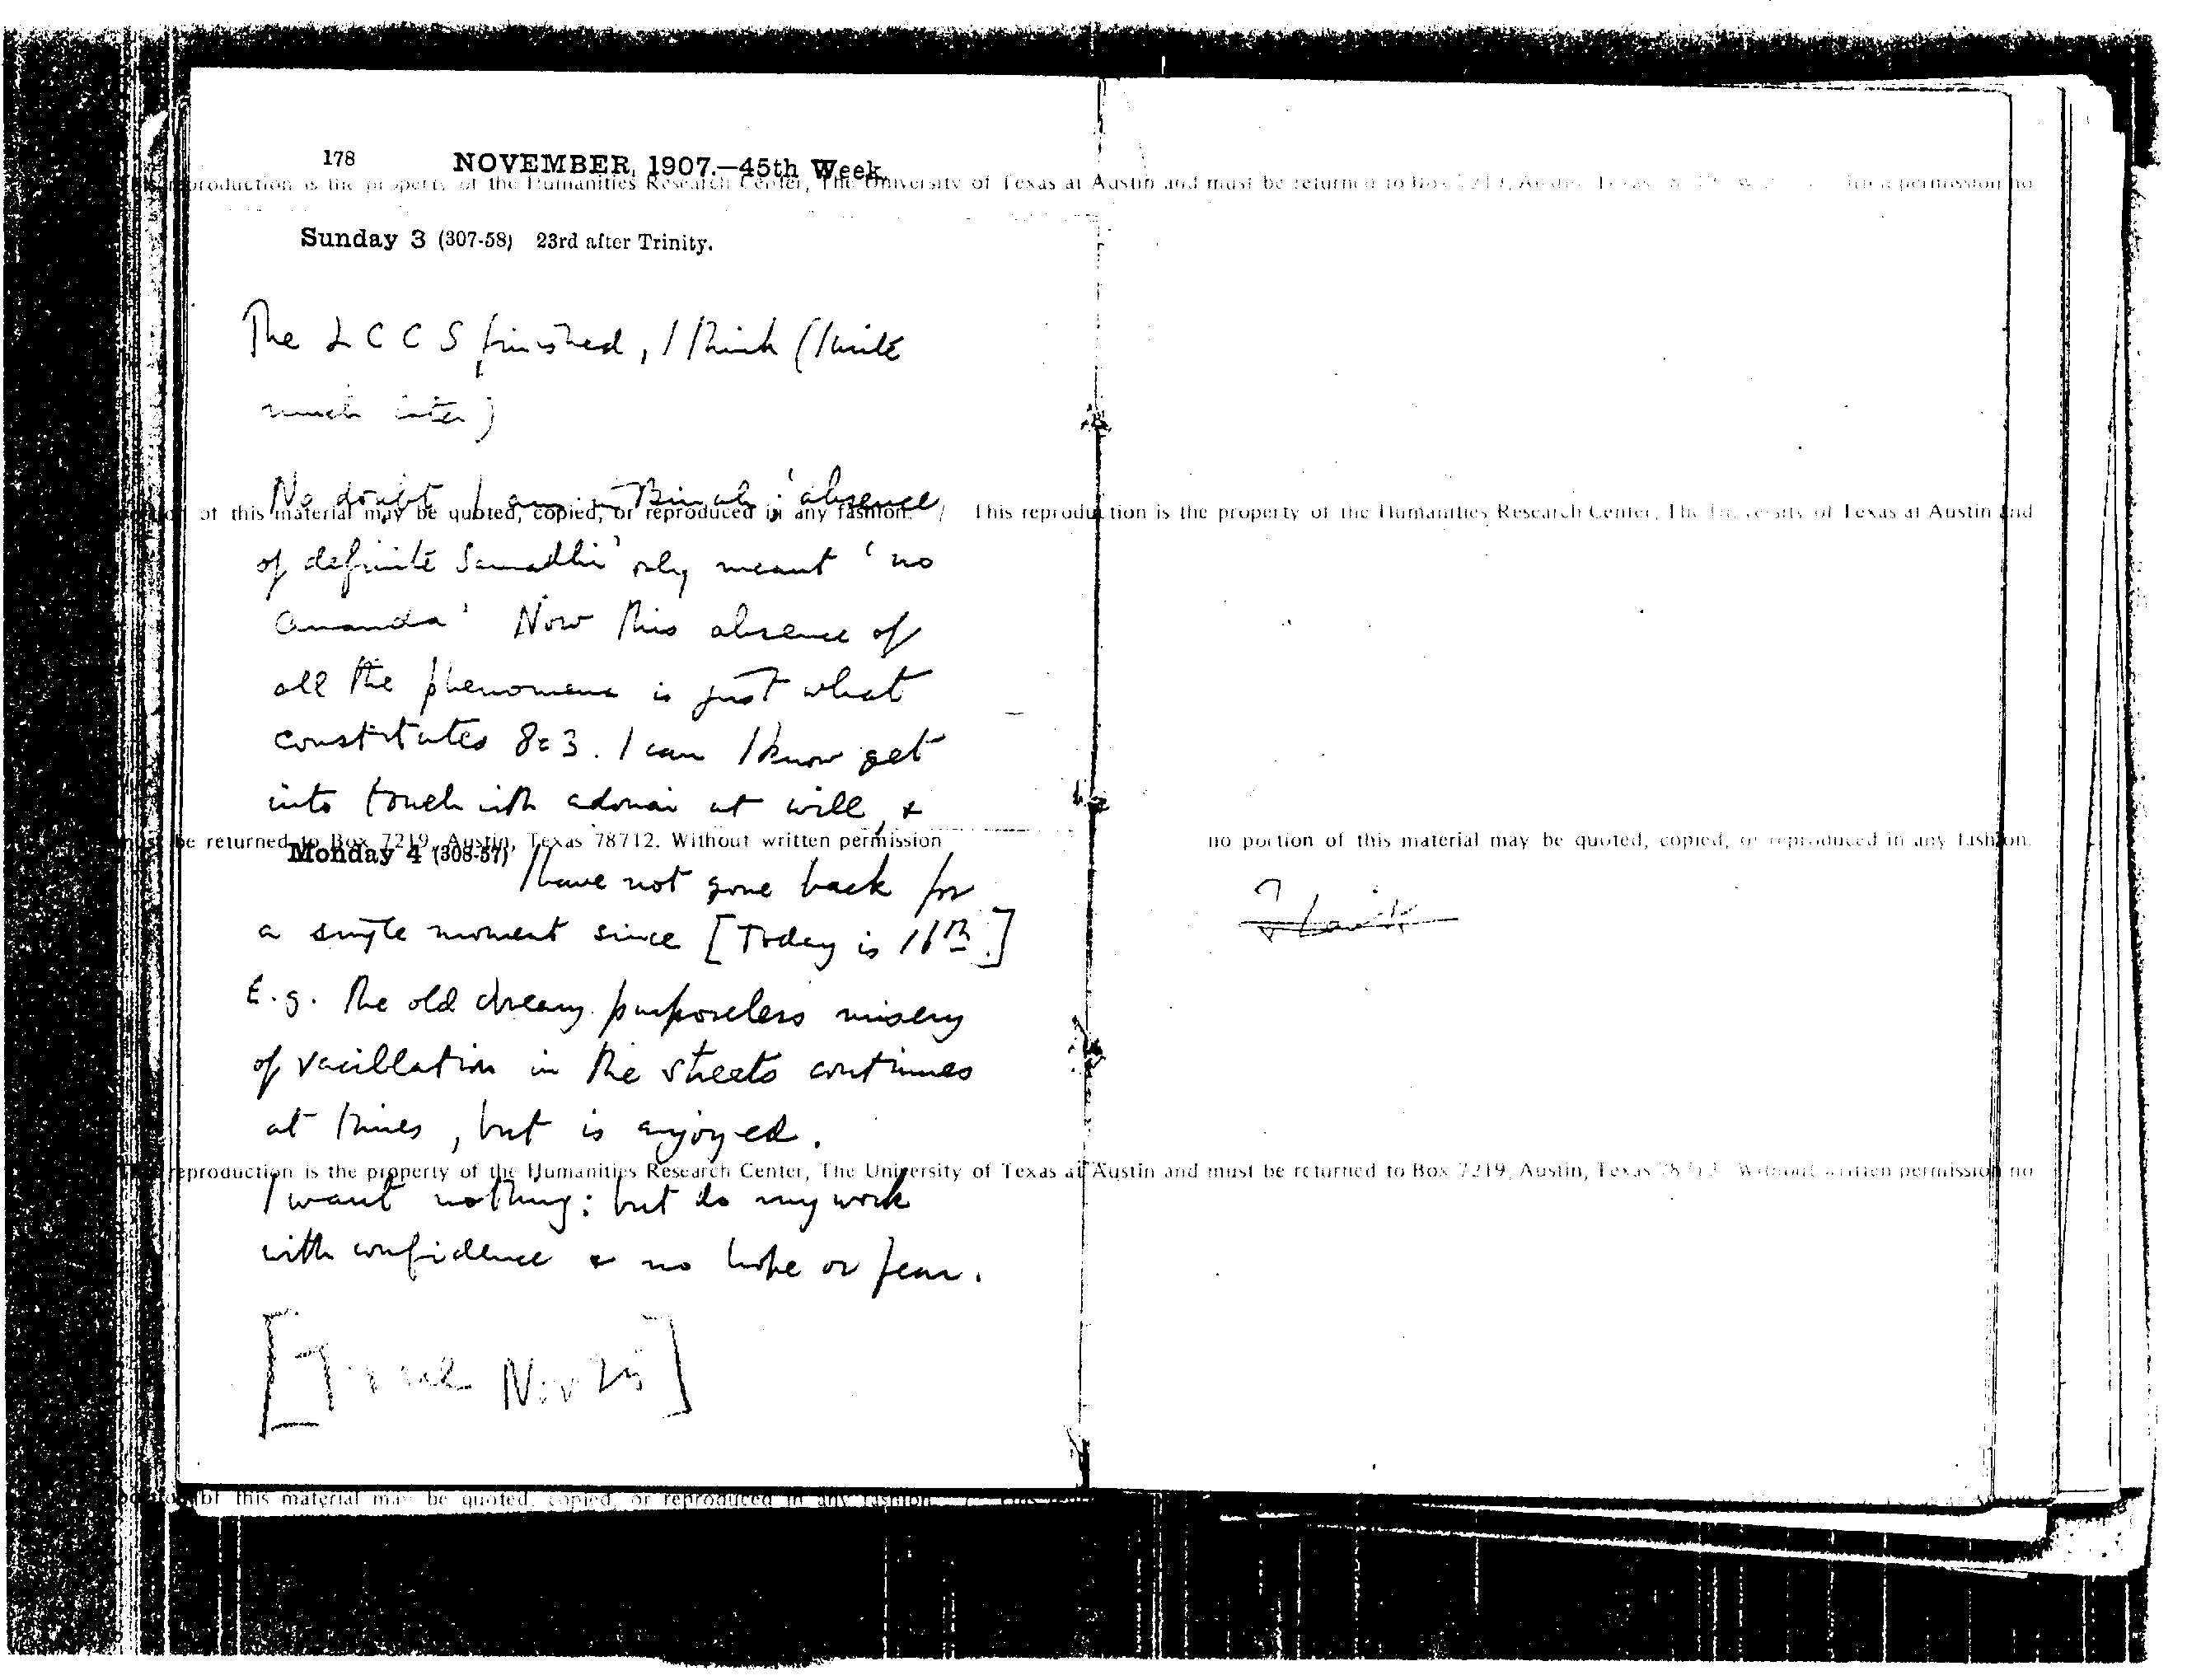 178 NOVEMBER, 1907.—45th Week.
This reproduction is the property of the Humanities Research Center, The University of Texas at Austin and must be returned to Box 7219, Austin, Texas 78712. Without written permission no
Sunday 3 (307-58) 23rd after Trinity.
The L C C S finished, I think (I write
much later)
No doubt I am in Binah; 'absence
portion of this material may be quoted, copied, or reproduced in any fashion. / This reproduction is the property of the Humanities Research Center, The University of Texas at Austin and
of definite Samadhi' only meant 'no
Ananda' Now this absence of
all the phenomena is just what
constitutes 8=3. I can I know get
into touch with adonai at will, &
must be returned to Box 7219, Austin, Texas 78712. Without written permission no portion of this material may be quoted, copied, or reproduced in any fashion.
Monday 4 (308-57) I have not gone back for
a single moment since [Today is 16th.]
E.g. the old dreamy purposeless misery
of vacillation in the streets continues
at times, but is enjoyed.
This reproduction is the property of the Humanities Research Center, The University of Texas at Austin and must be returned to Box 7219, Austin, Texas 78712. Without written permission no
I want nothing: but do my work
with confidence & no hope or fear.
[True Nov 25]
portion of this material may be quoted, copied, or reproduced in any fashion.